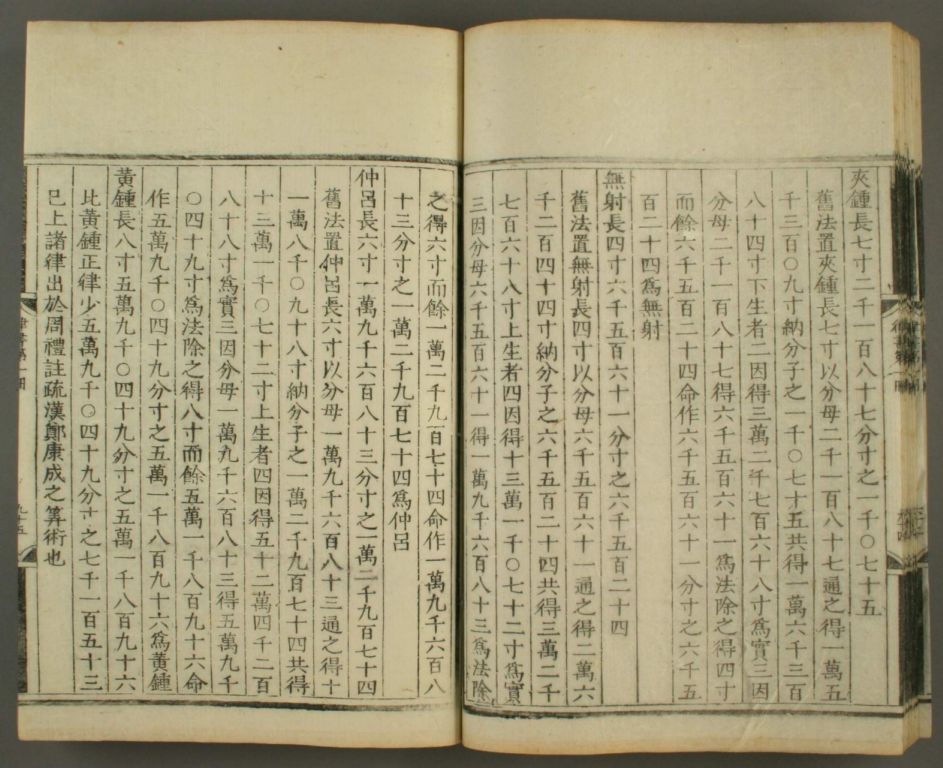 夾鍾長七寸二千一百八十七分寸之一千〇七十五
舊法置夾鍾長七寸以分母二千一百八十七通之得一萬五
千三百〇九寸納分子之一千〇七十五共得一萬六千三百
八十四寸下生者二因得三萬二千七百六十八寸爲實三因
分母二千一百八十七得六千五百六十一爲法除之得四寸
而餘六千五百二十四命作六千五百六十一分寸之六千五
百二十四爲無射
無射長四寸六千五百六十一分寸之六千五百二十四
舊法置無射長四寸以分母六千五百六十一通之得二萬六
千二百四十四寸納分子之六千五百二十四共得三萬二千
七百六十八寸上生者四因得十三萬一千〇七十二寸爲實
三因分母六千五百六十一得一萬九千六百八十三爲法除
之得六寸而餘一萬二千九百七十四命作一萬九千六百八
十三分寸之一萬二千九百七十四爲仲呂
仲呂長六寸一萬九千六百八十三分寸之一萬二千九百七十四
舊法置仲呂長六寸以分母一萬九千六百八十三通之得十
一萬八千〇九十八寸納分子之一萬二千九百七十四共得
十三萬一千〇七十二寸上生者四因得五十二萬四千二百
八十八寸爲實三因分母一萬九千六百八十三得五萬九千
〇四十九寸爲法除之得八寸而餘五萬一千八百九十六命
作五萬九千〇四十九分寸之五萬一千八百九十六爲黃鍾
黃鍾長八寸五萬九千〇四十九分寸之五萬一千八百九十六
比黃鍾正律少五萬九千〇四十九分寸之七千一百五十三
已上諸律出於周禮註疏漢鄭康成之筭術也
九十五